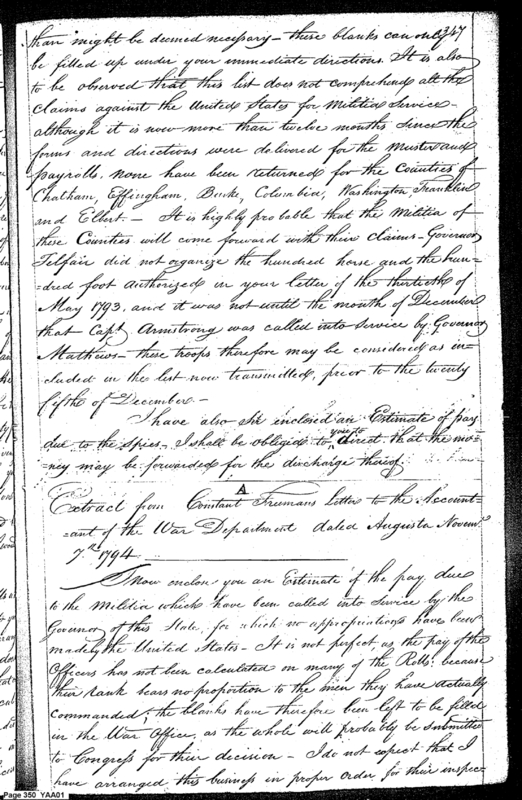 347
than might be deemed necessary – these blanks can only
be filled up under your immediate directions. It is also
to be observed that this list does not comprehend all the
Claims against the United States for Militia Service –
although it is now more than twelve months since the
forms and directions were delivered for the muster and
payrolls, none have been returned for the Counties of
Chatham, Effingham, Burke, Columbia, Washington, Franklin
and Elbert. – It is highly probable that the Militia of
these Counties will come forward with their claims – Governor
Telfair did not organize the hundred horse and the hun=
=dred foot authorized in your letter of the thirtieth of
May 1793, and it was not until the month of December
that Capt Armstrong was called into service by Governor
Mathews – these troops therefore may be considered as in=
cluded in the list now transmitted, prior to the twenty
fifth of December –
I have also Sir enclosed an Estimate of pay
due to the Spies – I shall be obliged to you to direct, that the mo=
=ney may be forwarded for the discharge thereof.
A
Extract from Constant Freemans Letter to the Account=
=ant of the War Department dated Augusta Novemr.
7th 1794
I now enclose you an Estimate of the pay due
to the Militia which have been called into service by the
Governor of this State, for which no appropriations have been
made by the United States – It is not perfect, as the pay of the
Officers has not been calculated on many of the Rolls, because
their rank bears no proportion to the men they have actually
commanded; the blanks have therefore been left to be filled
in the War Office, as the whole will probably be submitted
to Congress for their decision – I do not expect that I
have arranged this business in proper order for their inspec=
Page 350 YAA01